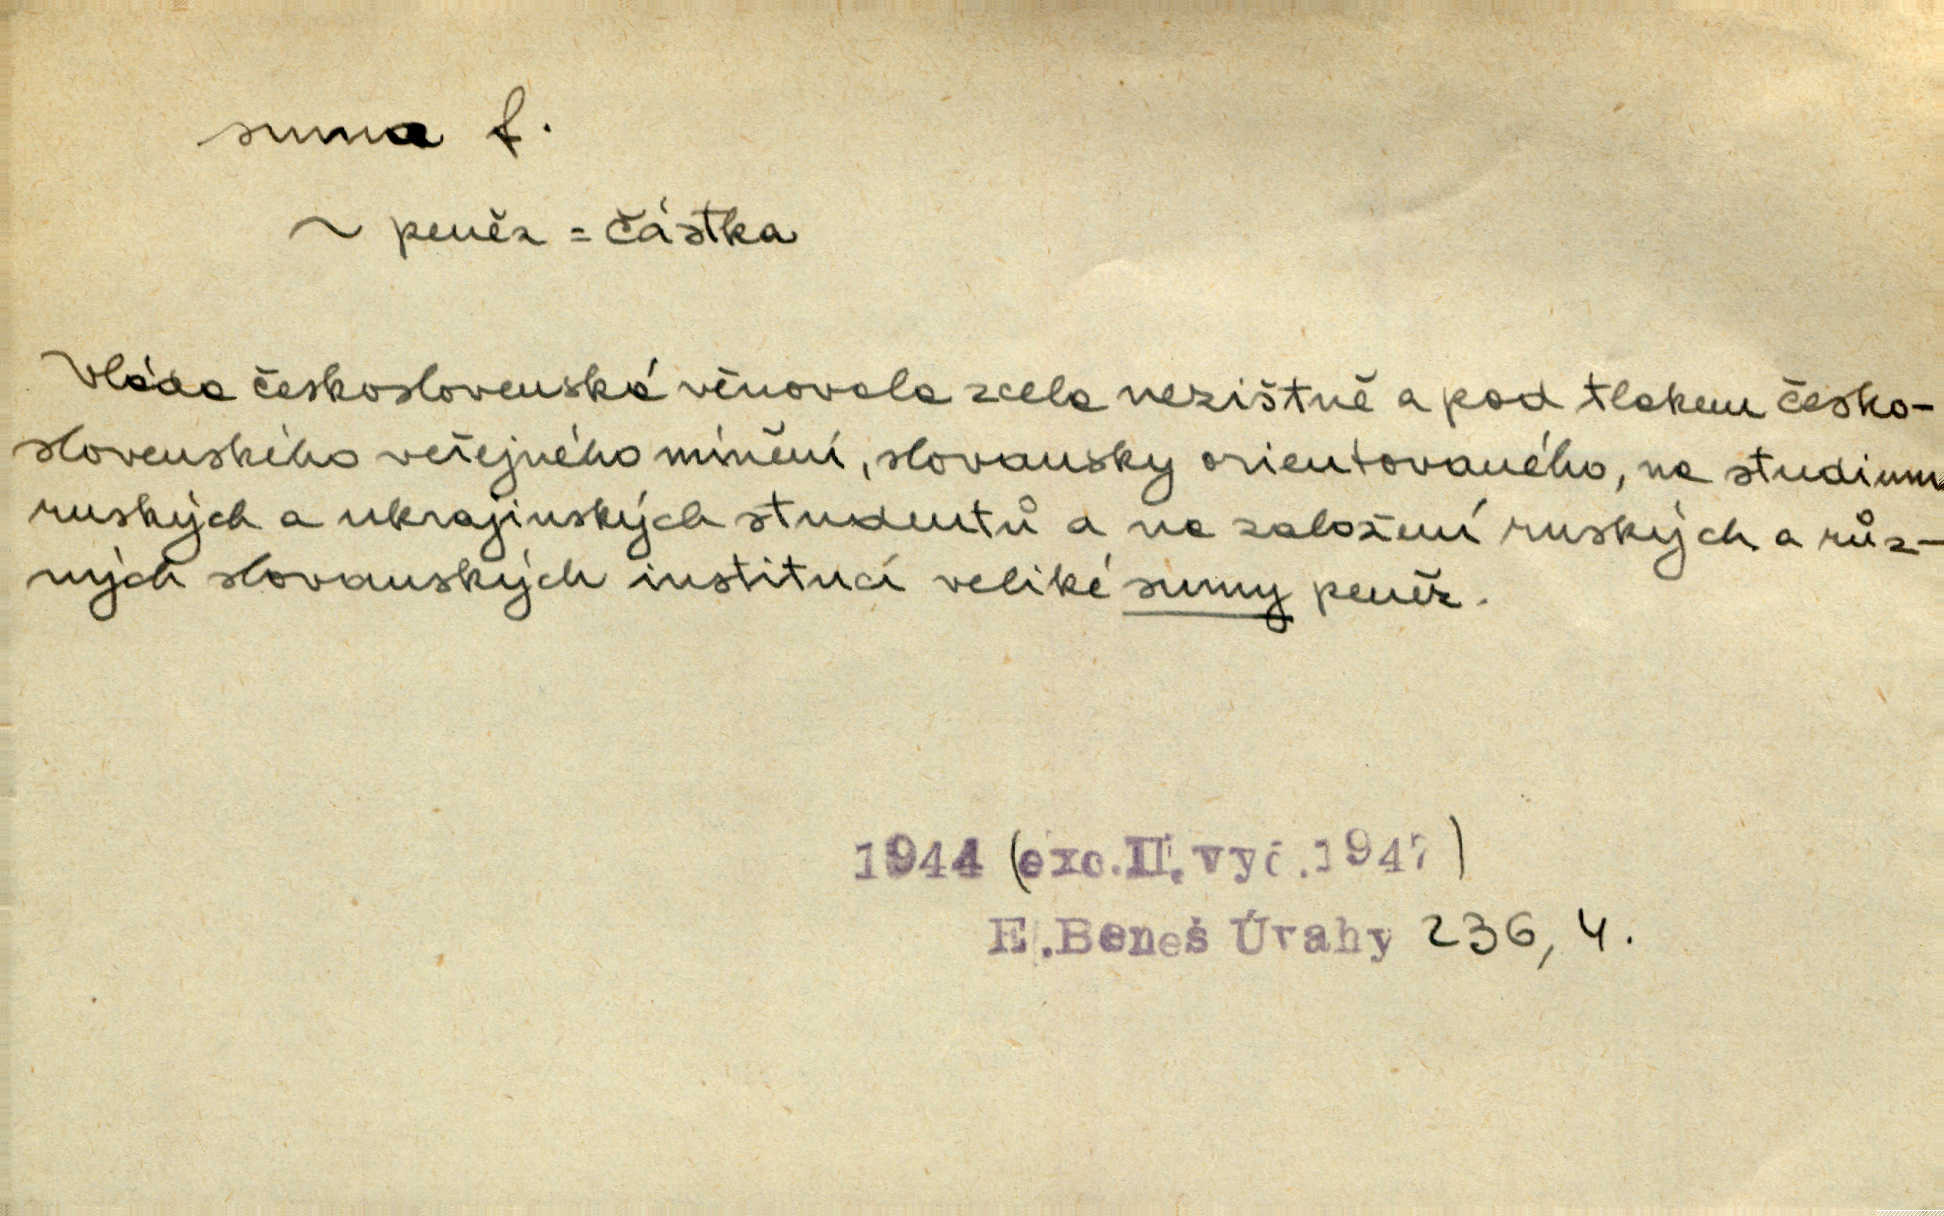 suma f.
~ peněz = částka
Vláda československá věnovala zcela nezištně a pod tlakem česko-
slovenského veřejného mínění, slovansky orientovaného, na studium
ruských a ukrajinských studentů a na založení ruských a růz-
ných slovanských institucí veliké sumy peněz.
1944 (exc.II.vyd.1947)
E.Beneš Úvahy 236, 4.